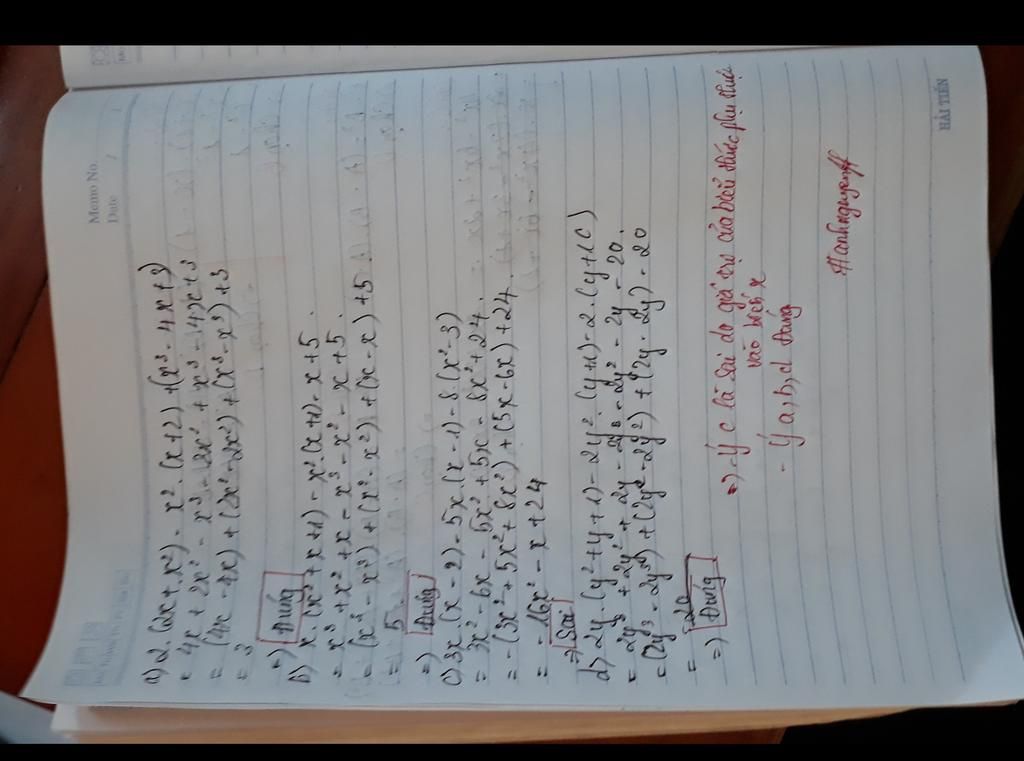 Memo No.
Date
a) 2.(2x + x²) - x².(x+2) + (x³ - 4x + 3)
= 4x + 2x² - x³ - 2x² + x³ - 4x + 3
= (4x - 4x) + (2x² - 2x²) + (x³ - x³) + 3
= 3
=) Đúng
b) x.(x² + x + 1) - x².(x+1) - x + 5.
= x³ + x² + x - x³ - x² - x + 5.
= (x³ - x³) + (x² - x²) + (x - x) + 5
= 5
=) Đúng
c) 3x.(x - 2) - 5x.(x - 1) - 8.(x² - 3)
= 3x² - 6x - 5x² + 5x - 8x² + 24.
= -(3x² + 5x² + 8x²) + (5x - 6x) + 24.
= -16x² - x + 24
=) Sai
d) 2y.(y² + y + 1) - 2y².(y+1) - 2.(y+10)
= 2y³ + 2y² + 2y - 2y³ - 2y² - 2y - 20.
= (2y³ - 2y³) + (2y² - 2y²) + (2y - 2y) - 20
= -20
=) Đúng
=) - Ý c là sai do giá trị của biểu thức phụ thuộc
vào biến x
- Ý a, b, d Đúng
Hanhnguyenff
HẢI TIẾN